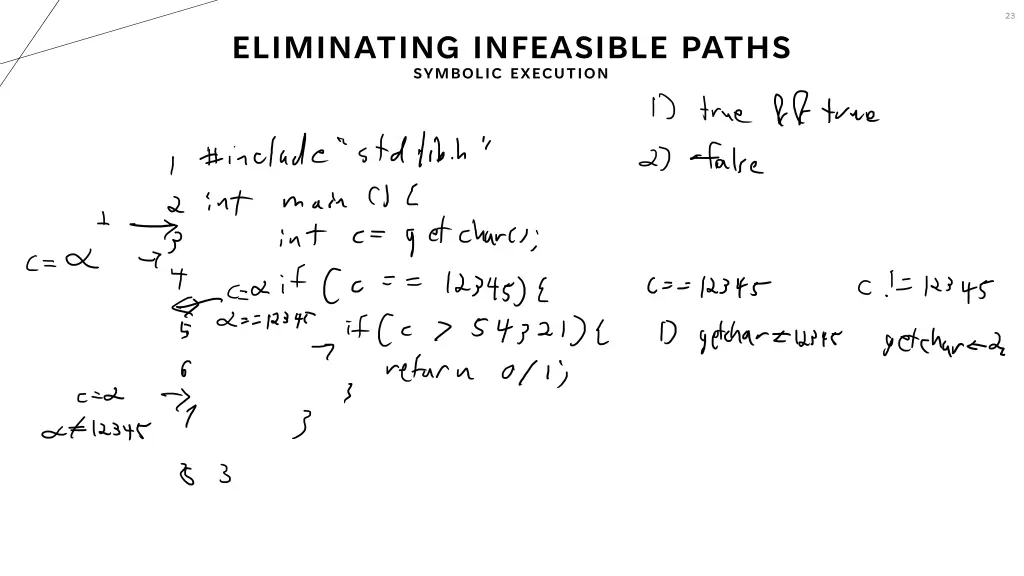 23
ELIMINATING INFEASIBLE PATHS
SYMBOLIC EXECUTION
1) true && true
2) false
1 #include "stdlib.h"
2 int main () {
1
3 int c = getchar();
c = α
4 if (c == 12345) {
c=α
α==12345
5 if (c > 54321) {
6 return 0/1;
}
c=α
α≠12345
7 }
8 }
c==12345
c != 12345
1) getchar←12345
getchar←2